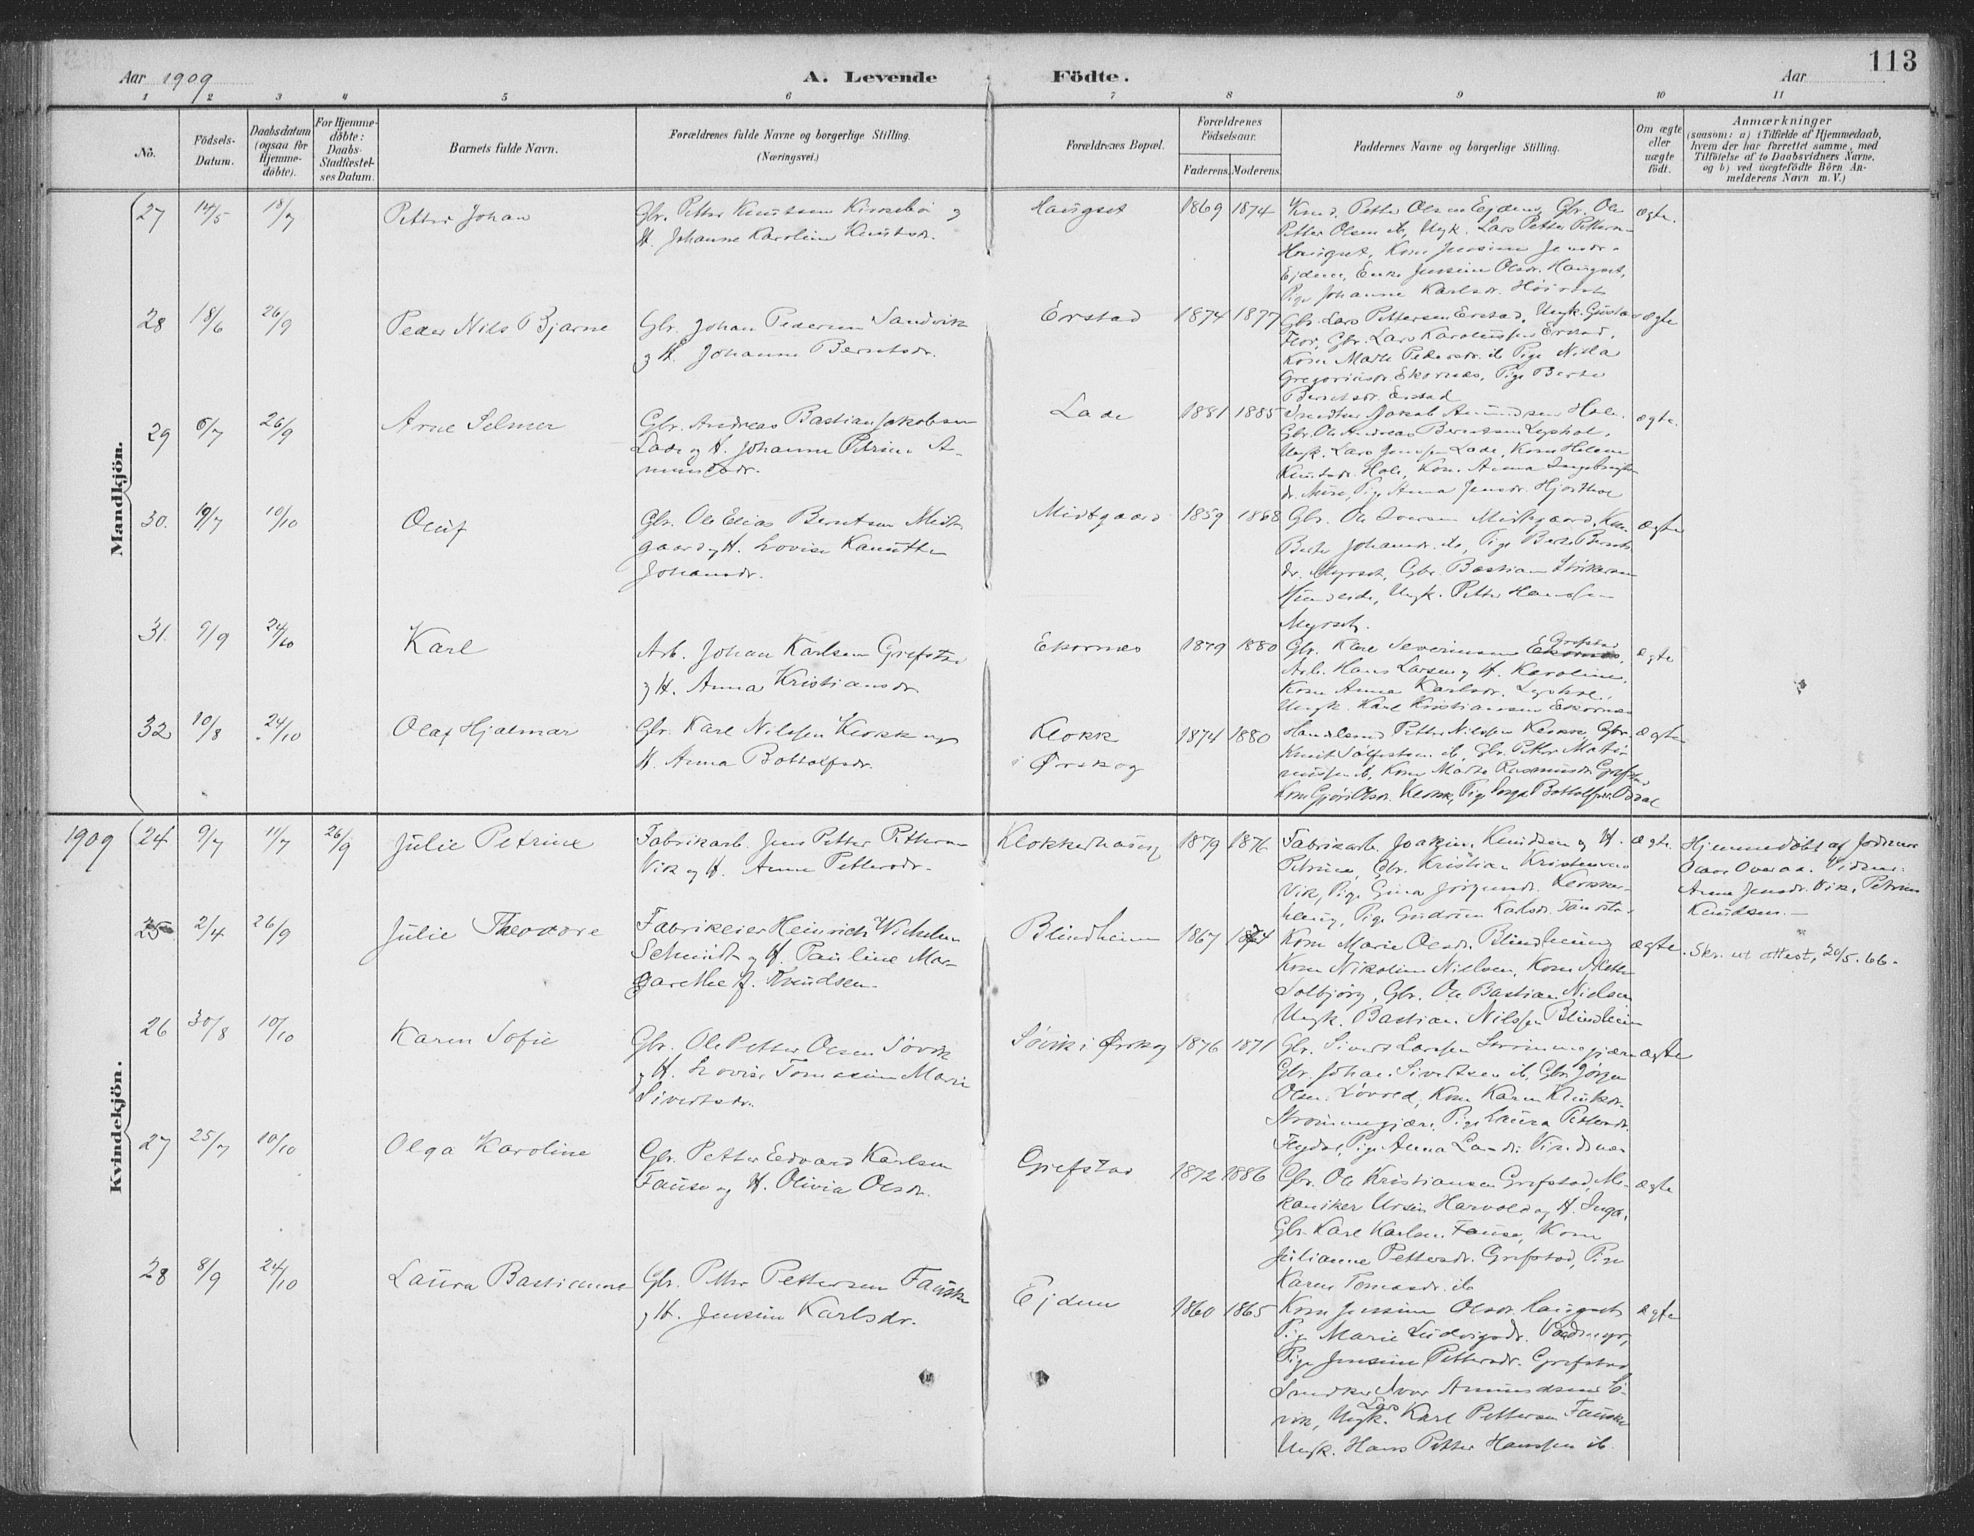 113
Aar 1909
A. Levende Födte.
Aar
1 2 3 4 5 6 7 8 9 10 11
No.
Födsels-
Datum.
Daabsdatum
(ogsaa for
Hjemme-
döbte).
For Hjemme-
döbte:
Daabs-
Stadfæstel-
ses Datum.
Barnets fulde Navn.
Forældrenes fulde Navne og borgerlige Stilling.
(Næringsvei.)
Forældrenes Bopæl.
Forældrenes
Födselsaar.
Faderens. Moderens.
Faddernes Navne og borgerlige Stilling.
Om ægte
eller
uægte
födt.
Anmærkninger
(saasom: a) i Tilfælde af Hjemmedaab,
hvem der har forrettet samme, med
Tilföielse af to Daabsvidners Navne,
og b) ved uægtefödte Börn An-
melderens Navn m. V.)
Mandkjön.
27 14/5 18/7 Petter Johan
Gbr. Petter Knutsen Kirsebø og
H. Johanne Karoline Knutsdr.
Haugset 1869 1874
Petter Olsen Ejdem, Gbr. Ole
Petter Olsen ib, Ungk. Lars Petter Pettersen
Haugset, Kone Jensine Jensdr.
Ejdem, Enke Jensine Olsdr. Haugset,
Pige Johanne Karlsdr.
ægte.
28 18/6 26/9 Peder Nils Bjarne
Gbr. Johan Pedersen Sandvik
og H. Johanne Berntsdr.
Erstad 1874 1877
Gbr. Lars Pettersen Erstad, Ungk. Gustav
Flor, Gbr. Lars Karolussen Erstad,
Kone Marte Pedersdr. ib Pige Nilla
Gregoriusdr. Ekornes, Pige Berte
Berntsdr. Erstad
ægte
29 6/7 26/9 Arne Selmer
Gbr. Andreas Bastian Jakobsen
Lade og H. Johanne Petrine A-
mundsdr.
Lade 1881 1885
Jakob Amundsen Hole
Gbr. Ole Andreas Berntsen Lyshol,
Ungk. Lars Jensen Lade, Kone Helene
Knutsdr. Hole, Kone Anna Ingebrigts-
dr. Pige Anna Jensdr. Hjorthol
ægte.
30. 19/7 10/10 Oluf
Gbr. Ole Elias Berntsen Midt-
gaard og H. Lovise Knutte
Johansdr.
Midtgaard 1859 1868
Gbr. Ole Iversen Midtgaard, Kone
Berte Johansdr. ib, Pige Berte Bernts-
dr. Myrset, Gbr. Bastian
Ungk. Petter Hansen
Myrset.
ægte
31. 9/9 24/10 Karl
Arb. Johan Karlsen Grefstad
og H. Anna Kristiansdr.
Ekornes 1879 1880
Gbr. Karl Severinsen Grefstad,
Arb. Hans Larsen og H. Karoline,
Kone Anna Karlsdr. Lyshol,
Ungk. Karl Kristiansen Ekornes
ægte
32 10/8 24/10 Olaf Hjalmar
Gbr. Karl Nilssen Klokk og
H. Anna Bottolfsdr.
Klokk
i Ørskog
1874 1880
Petter Nilssen Klokk, Gbr.
Knut ib, Gbr. Petter
ib, Kone Marte Rasmusdr. Grefstad
Kone Olsdr. Klokk, Pige Bottolfsdr.
ægte
Kvindekjön.
1909 24 9/7 11/7 26/9 Julie Petrine
Fabrikarb. Jens Petter Pettersen
Vik og H. Anne Pettersdr.
Klokkerhaug 1879 1876
Fabrikarb. Joakim Knudsen og H.
Petrine, Gbr. Kristian Kristensen
Vik, Pige Gina Jørgendr. Klokker-
haug, Pige Gudrun Karlsdr.
ægte.
Hjemmedøbt af Jordmor
Vidner:
Anna Jensdr. Vik, Petrine
Knudsen.
25 2/4 26/9 Julie Theodore
Fabrikeier Heinrich Wilhelm
Schmidt og H. Pauline Mar-
garethe f. Knudsen.
Blindheim 1867 1874
Kone Marie Olsdr. Blindheim
Kone Nikoline Nielsen, Kone
Solbjørg, Gbr. Ole Bastian Nielsen
Ungk. Bastian Nilssen Blindheim
ægte.
Skr. ut attest, 20/5.66.
26 30/8 10/10 Karen Sofie
Gbr. Ole Petter Olsen Søvik
og H. Lovise Tomasine Marie
Sivertsdr.
Søvik i Ørskog 1876 1871
Gbr. Sivert Larssen Strømmegjære
Gbr. Johan Sivertsen ib, Gbr. Jørgen
Olsen Løvold, Kone Karen Knutsdr.
Strømmegjære, Pige Laura Pettersdr.
Pige Anna
ægte
27 25/7 10/10 Olga Karoline
Gbr. Petter Edvard Karlsen
Fause og H. Olivia Olsdr.
Grefstad 1872 1886
Gbr. Ole Kristiansen Grefstad, Me-
kaniker Ursin Harvold og H. Inga,
Gbr. Karl Karlsen Fause, Kone
Julianne Pettersdr. Grefstad, Pige
Karen Tomasdr. ib
ægte
28 8/9 24/10 Laura Bastianne
Gbr. Petter Pettersen Fauske
og H. Jensine Karlsdr.
Ejdem 1860 1865
Kone Jensine Olsdr. Haugset
Pige Marie Ludvigsdr.
Pige Jensine Pettersdr. Grefstad
Snedker Ivar Amundsen Sø-
vik, Ungk. Lars Karl Pettersen Fauske
Ungk. Hans Petter Hanssen ib.
ægte